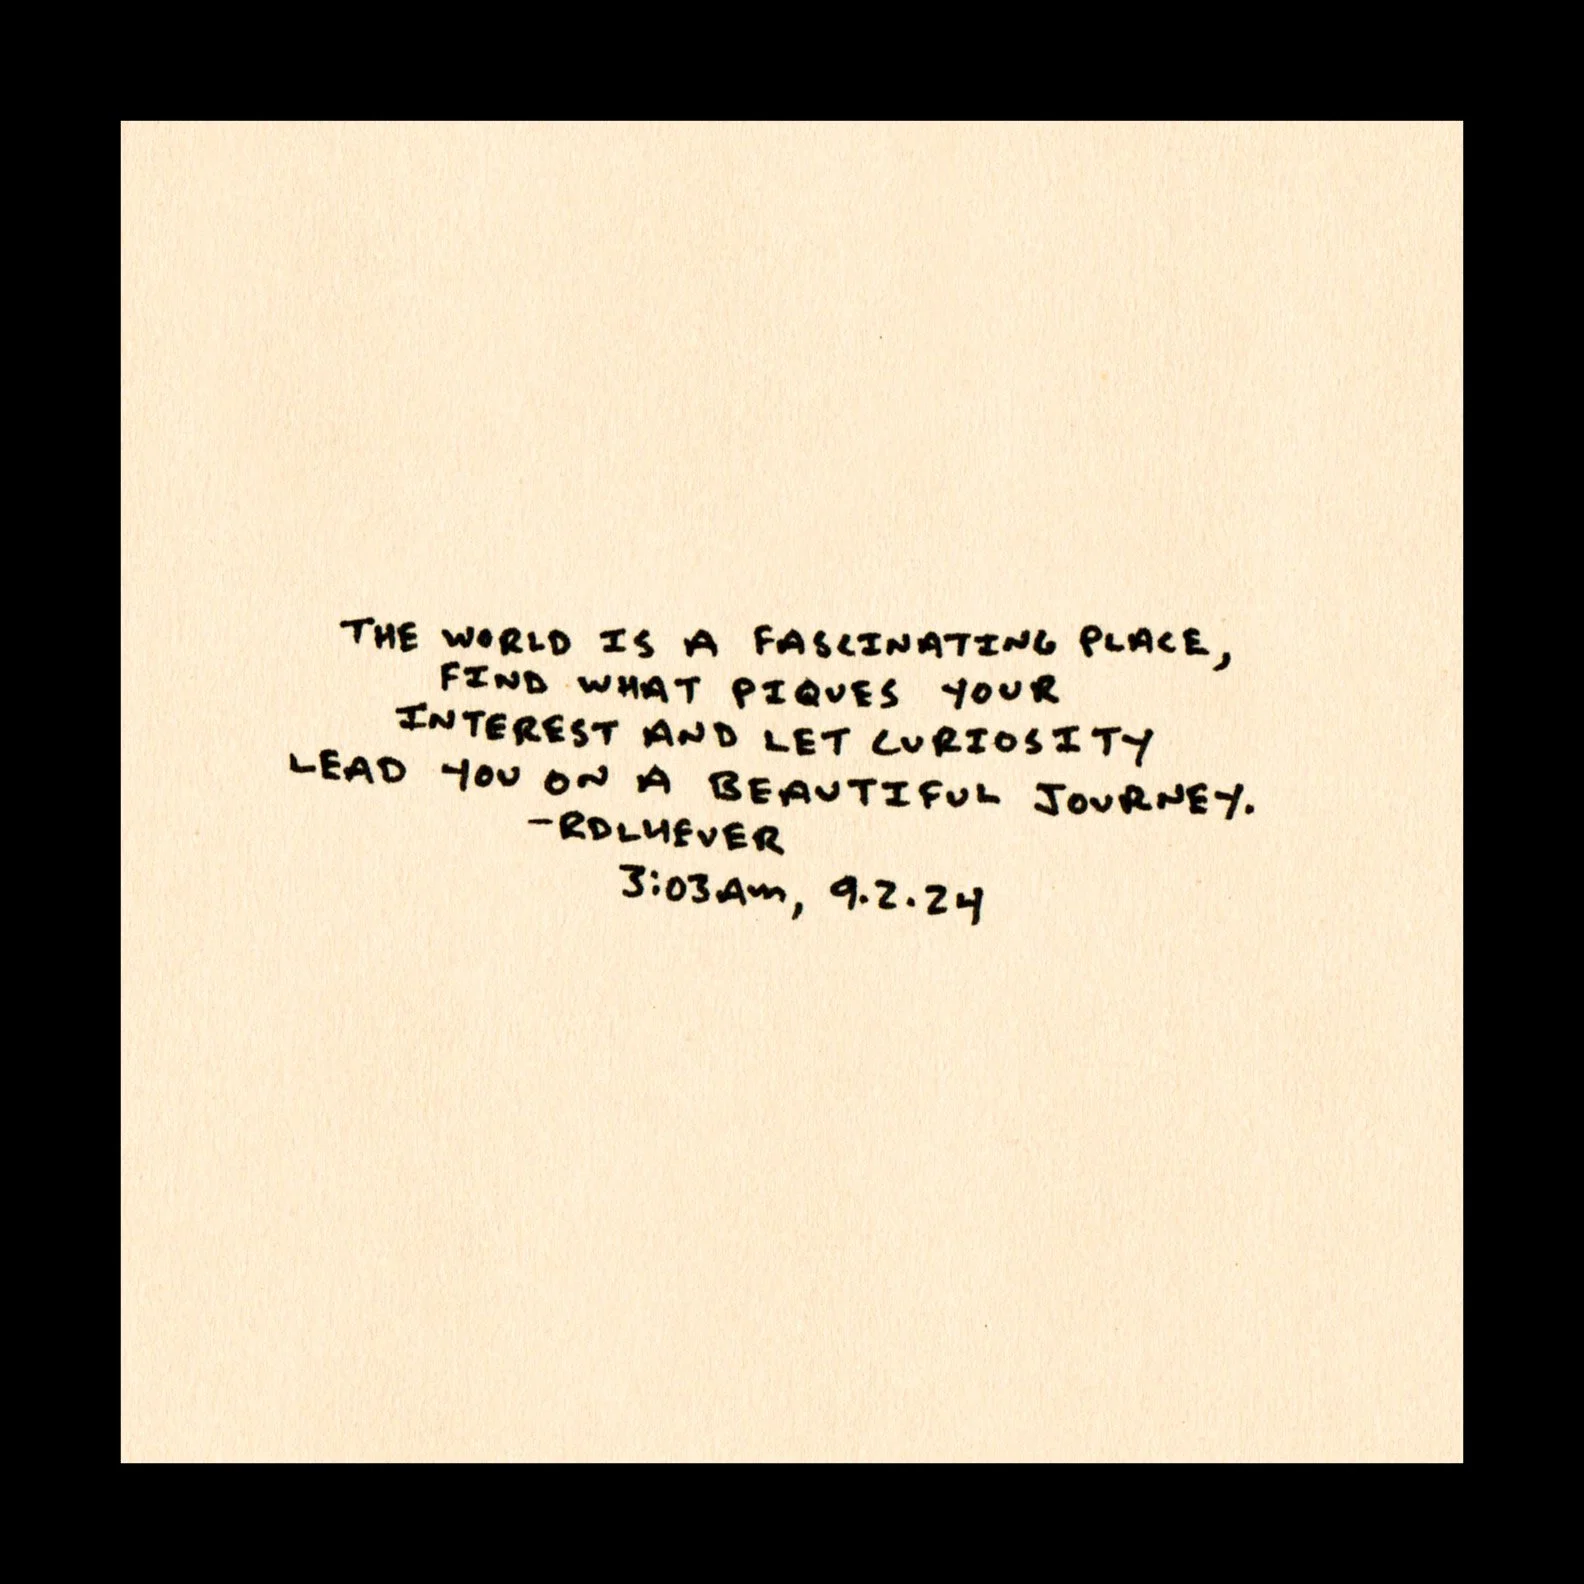 THE WORLD IS A FASCINATING PLACE,
FIND WHAT PIQUES YOUR
INTEREST AND LET CURIOSITY
LEAD YOU ON A BEAUTIFUL JOURNEY.
-RDLHEVER
3:03AM, 9.2.24